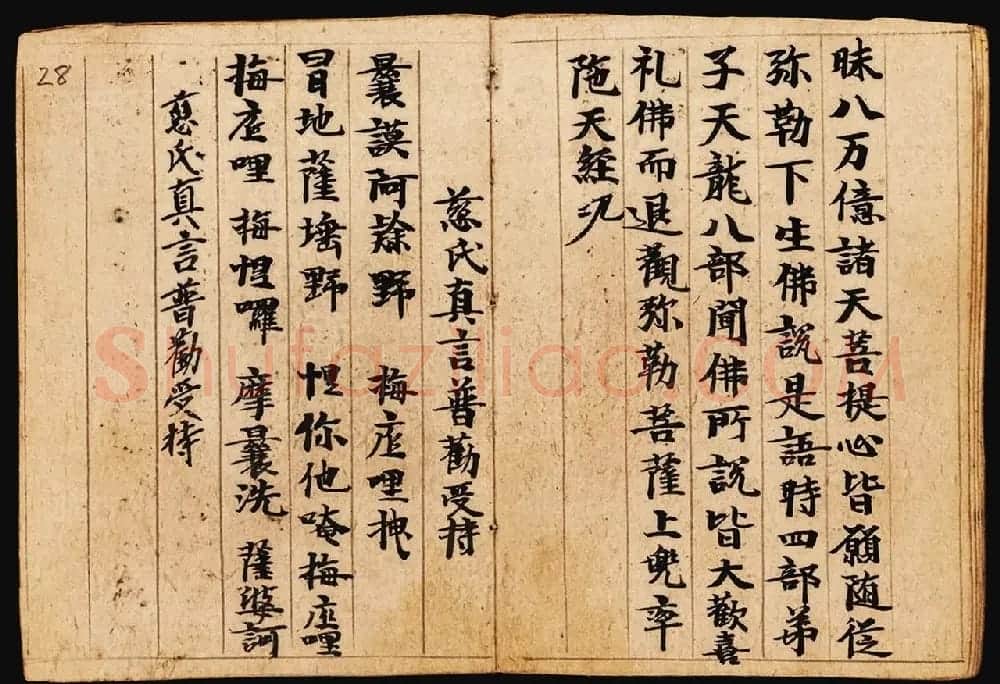 昧八万億諸天菩提心皆願随從
弥勒下生佛說是語時四部弟
子天龍八部聞佛所說皆大歡喜
礼佛而退觀弥勒菩薩上兜率
陁天經
慈氏真言普勸受持
曩謨阿野 梅底哩拽
冐地薩埵野 怛你他唵梅底哩
梅底哩 梅怛囉 摩曩洗 薩婆訶
慈氏真言普勸受持
28
Shufaziliao.com